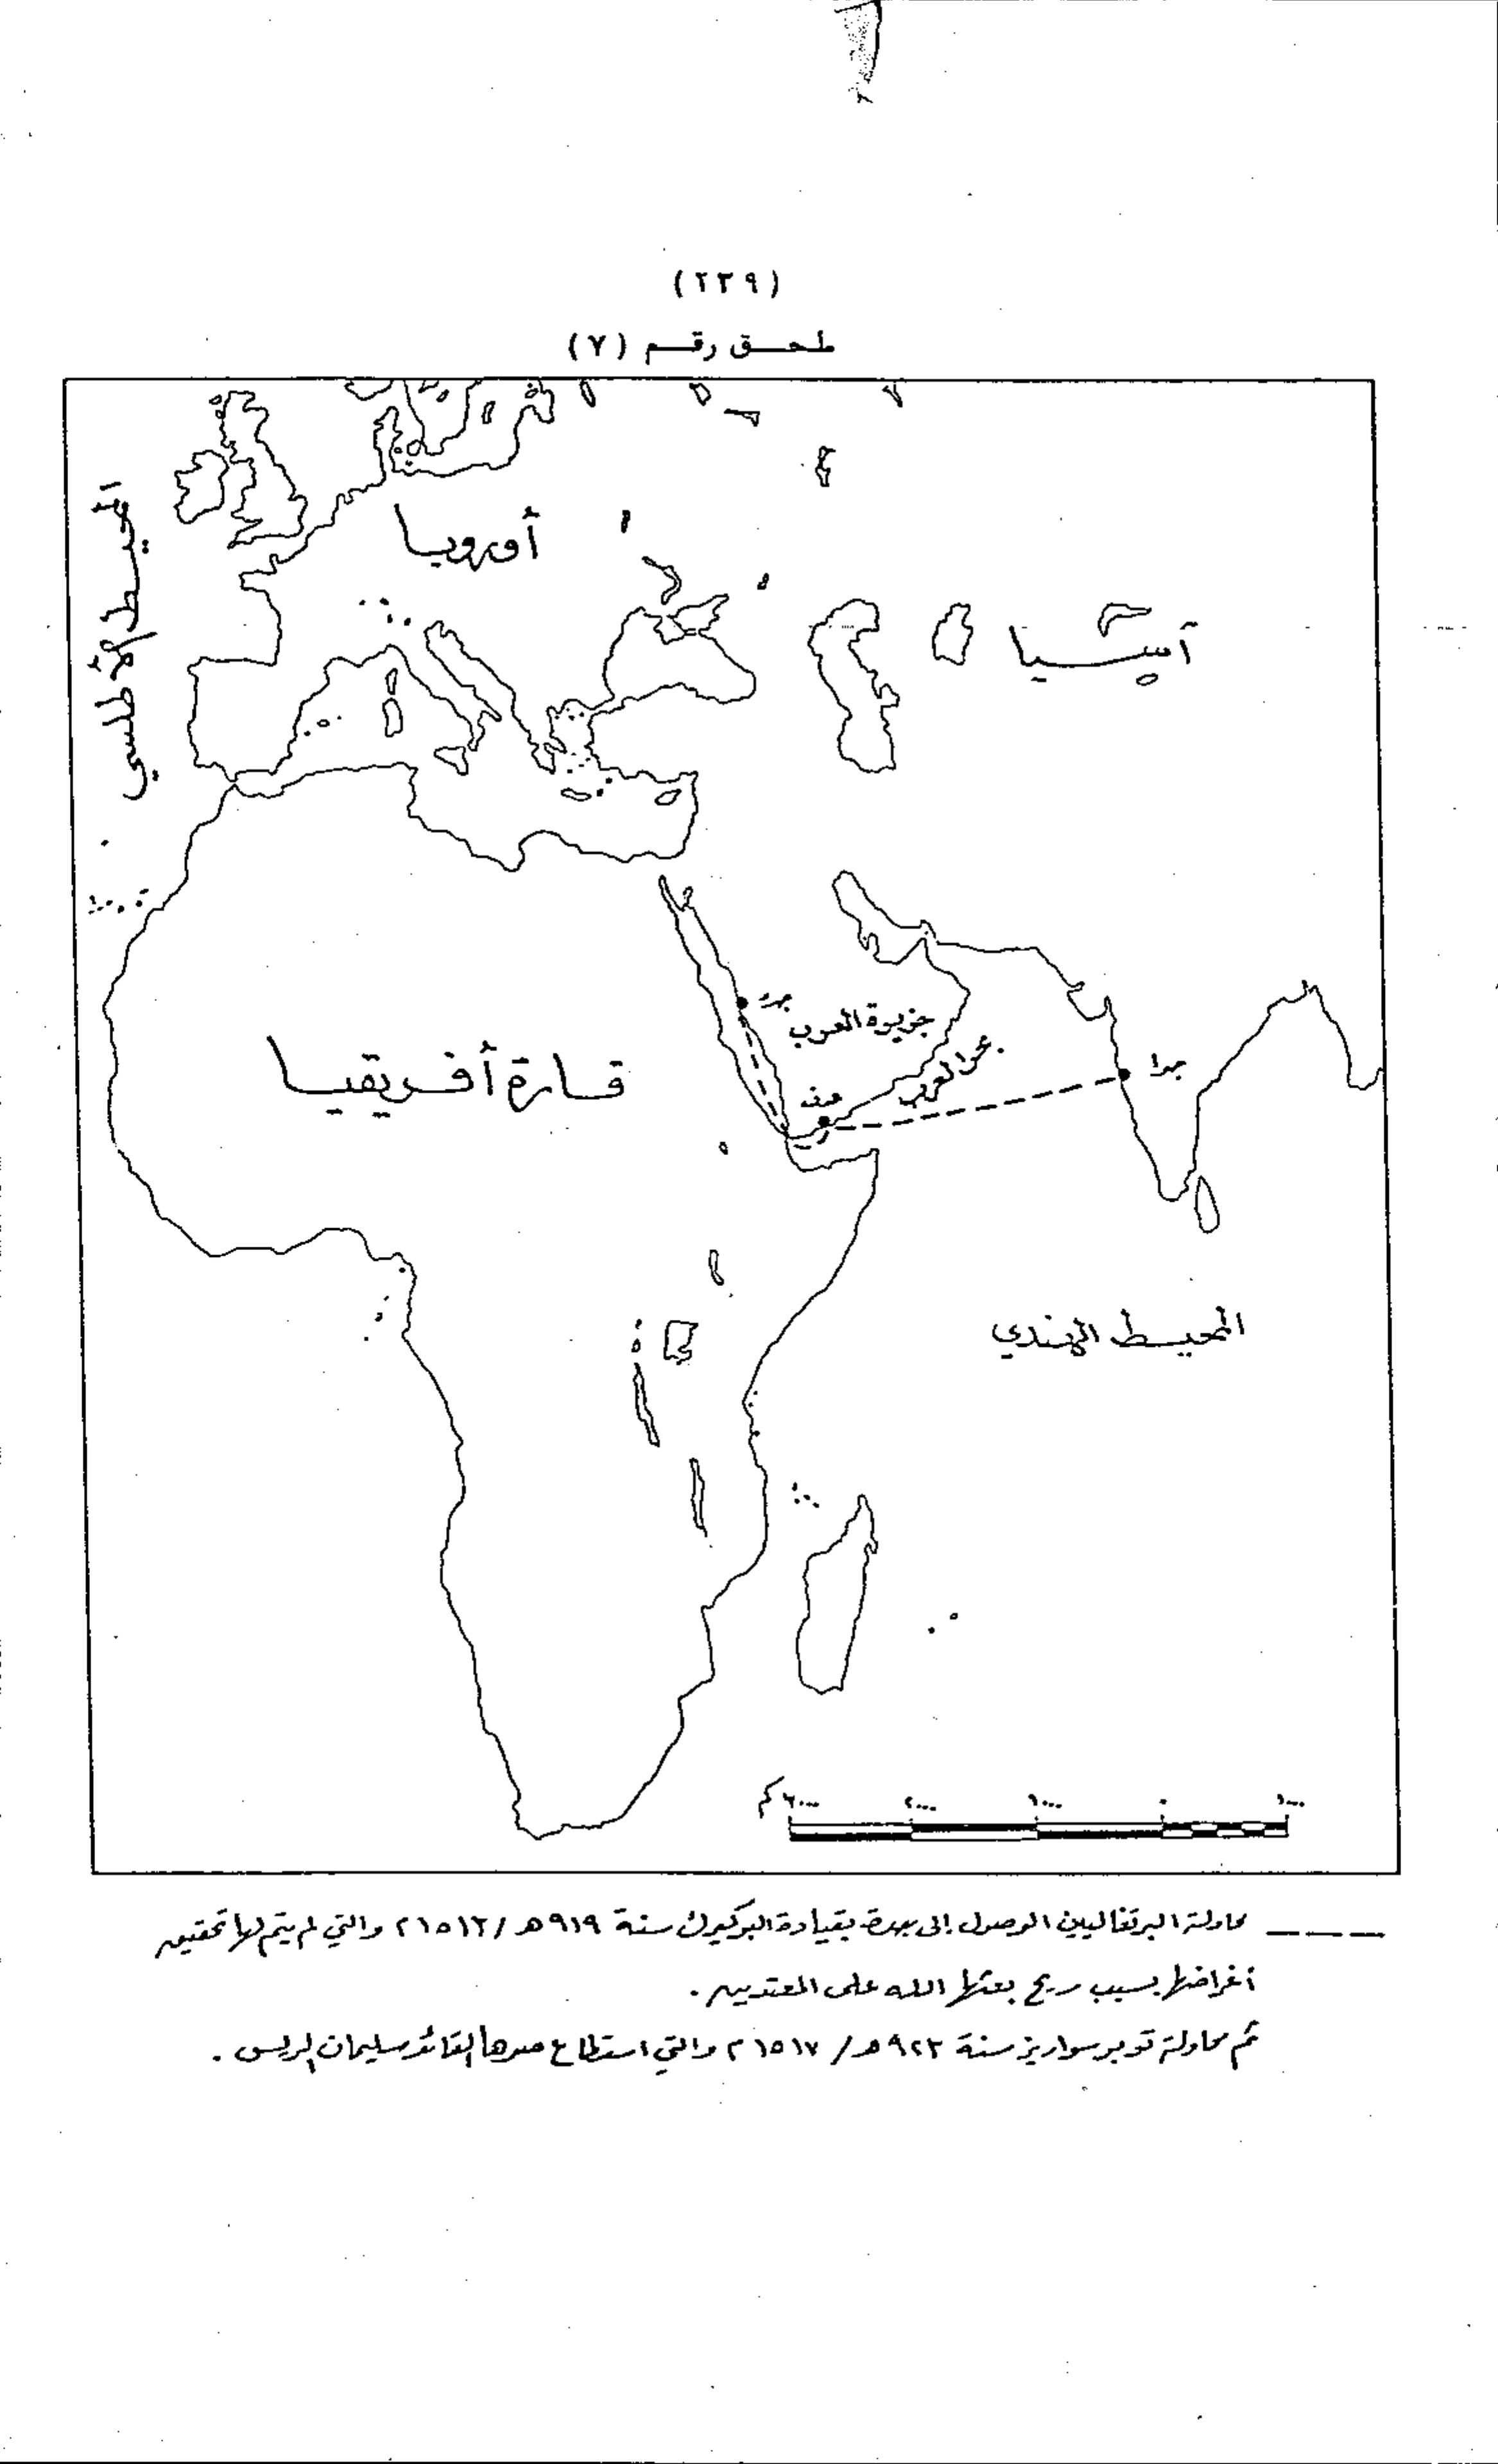 (٢٣٩)
ملحق رقم (٧)
أوروبا
المحيط الأطلسي
آسيا
جدة
جزيرة العرب
بحر العرب
عدن
قارة أفريقيا
المحيط الهندي
١٠٠٠ ٠ ١٠٠٠ ٢٠٠٠ كم
محاولة البرتغاليين الوصول إلى جدة بقيادة البوكيرك سنة ٩١٩هـ/١٥١٣م والتي لم يتم لها تحقيق
أغراضها بسبب ريح بعثها الله على المعتدين.
ثم محاولة لوبو سواريز سنة ٩٢٣هـ/١٥١٧م والتي استطاع صدها القائد سليمان الريس.